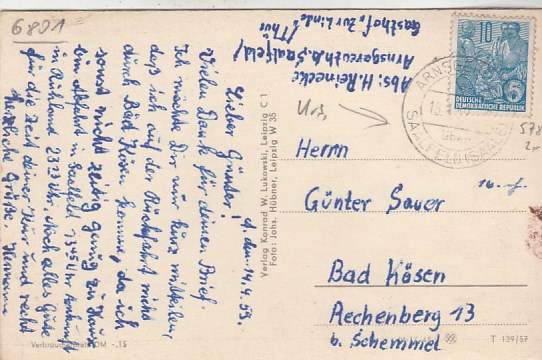 6801
A., den 14.4.59.
Lieber Günter!
Vielen Dank für deinen Brief.
Ich möchte Dir nur kurz mitteilen,
daß ich auf der Rückfahrt nicht
durch Bad Kösen komme, da ich
sonst nicht zeitig genug zu Hause
bin. Abfahrt in Saalfeld 13⁴⁵ Uhr Ankunft
in Ruhland 23²³ Uhr. Noch alles Gute
für die Zeit deiner Kur und recht
herzliche Grüße, Hermann
Verbraucherpreis DM -.15
Verlag Konrad W. Lukowski, Leipzig C 1
Foto: Johs. Hübner, Leipzig W 35
Abs: H. Reinecke
Arnsgereuth b. Saalfeld/
Thür
Gasthof "Zur Linde"
10
5
DEUTSCHE
DEMOKRATISCHE REPUBLIK
SAALFELD (SAALE)
578
Herrn
Günter Sauer
Bad Kösen
Rechenberg 13
b. Schemmel
T 139/57